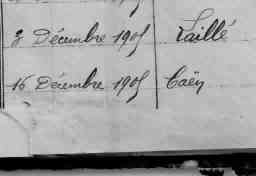 8 Décembre 1905 Laillé
16 Décembre 1905 Caën